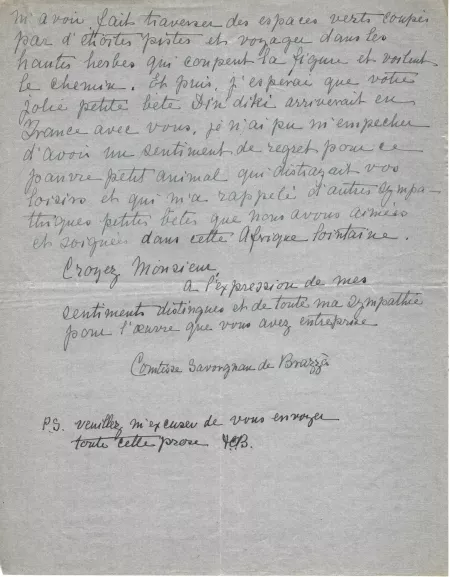 m'avoir fait traverser des espaces verts coupés
par d'étroites pistes et voyager dans les
hautes herbes qui coupent la figure et voilent
le chemin. Et puis, j'espérais que votre
jolie petite bête Din'diki arriverait en
France avec vous, je n'ai pu m'empêcher
d'avoir un sentiment de regret pour ce
pauvre petit animal qui distrayait vos
loisirs et qui m'a rappelé d'autres sympa-
thiques petites bêtes que nous avons aimées
et soignées dans cette Afrique lointaine.
Croyez Monsieur,
à l'expression de mes
sentiments distingués et de toute ma sympathie
pour l'œuvre que vous avez entreprise
Comtesse Savorgnan de Brazzà
P.S. veuillez m'excuser de vous envoyer
toute cette prose